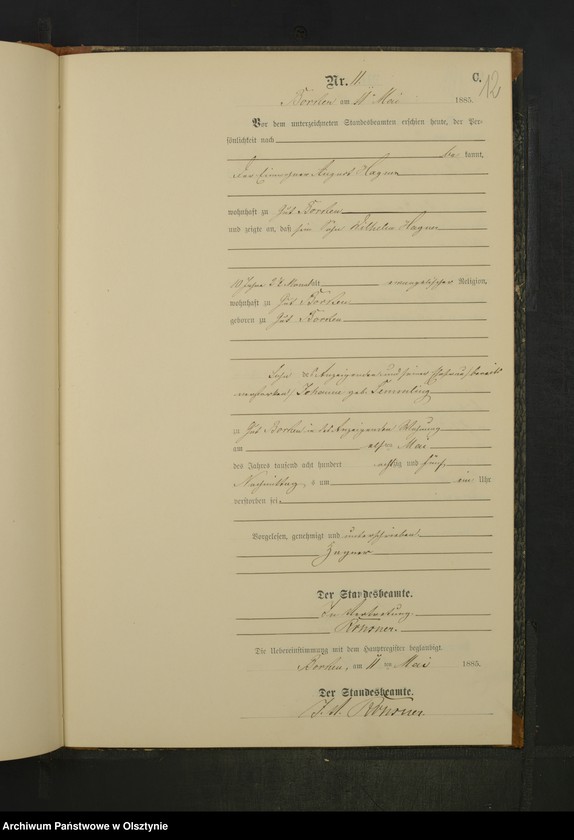 C.
12
Nr. 11.
Borken am 11ten Mai 1885.
Vor dem unterzeichneten Standesbeamten erschien heute, der Per-
sönlichkeit nach
be kannt,
Der Einwohner August Hagner
wohnhaft zu Gut Borken
und zeigte an, daß sein Sohn Wilhelm Hagner
10 Jahre 2 ½ Monate alt evangelischer Religion,
wohnhaft zu Gut Borken
geboren zu Gut Borken
Sohn des Anzeigenden und seiner Ehefrau, bereits
verstorben, Johanne geb.
zu Gut Borken in des Anzeigenden Wohnung
am elften Mai
des Jahres tausend acht hundert achtzig und fünf
Nachmittags um ein Uhr
verstorben sei.
Vorgelesen, genehmigt und unterschrieben
Hagner
Der Standesbeamte.
In Vertretung
Die Uebereinstimmung mit dem Hauptregister beglaubigt.
Borken, am 11ten Mai 1885.
Der Standesbeamte.
Archiwum Państwowe w Olsztynie